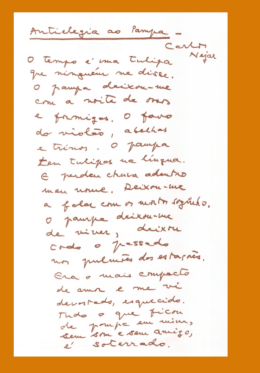 Antielegia ao Pampa -
Carlos
Nejar
O tempo é uma tulipa
que ninguém me disse.
O pampa deixou-me
com a noite de ossos
e formigas. O favo
do violão, abelhas
e trinos. O pampa
tem tulipas na língua.
E perdeu chuva adentro
meu nome. Deixou-me
a falar com os mortos sozinho.
O pampa deixou-me
de viver, deixou
todo o passado
nos pulmões das estações.
Era o mais compacto
de amor e me vi
devastado, esquecido.
Tudo o que ficou
de pampa em mim,
sem som e sem amigo,
é soterrado.